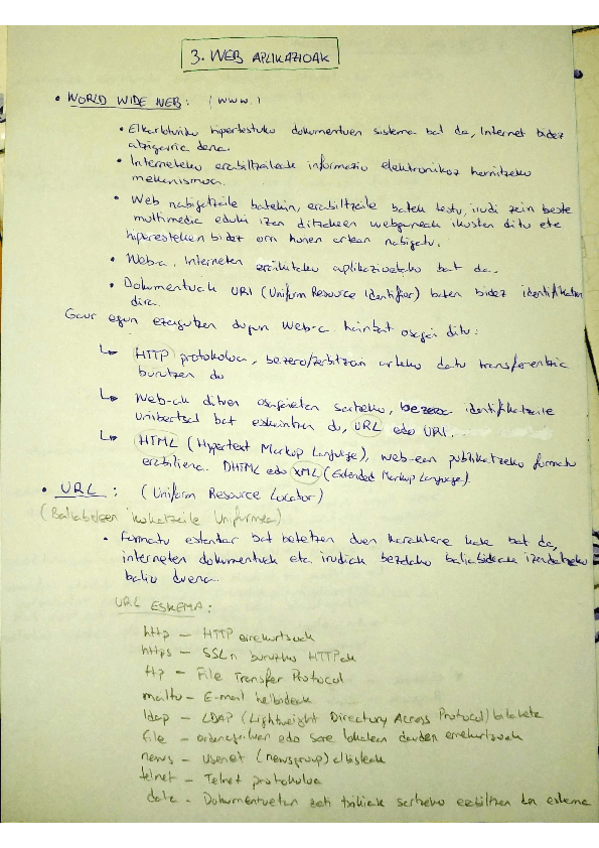 3. WEB APLIKAZIOAK
• WORLD WIDE WEB: (WWW)
• Elkarloturiko hipertestuko dokumentuen sistema bat da, Internet bidez
atzigarria dena.
• Interneteko erabiltzaileak informazio elektronikoz hornitzeko
mekanismoa.
• Web nabigatzaile batekin, erabiltzaile batek testu, irudi zein beste
multimedia eduki izan ditzakeen webguneak ikusten ditu eta
hiperesteken bidez orri honen artean nabigatu.
• Web-a, Interneten eraikitako aplikazioetako bat da.
• Dokumentuak URI (Uniform Resource Identifier) baten bidez identifikatzen
dira.
Gaur egun ezagutzen dugun Web-a hainbat osagai ditu:
↳ HTTP protokoloa, bezero/zerbitzari arteko datu transferentzia
burutzen du
↳ Web-ak dituen osagaietan sartzeko, identifikatzaile
unibertsal bat eskaintzen du, URL edo URI.
↳ HTML (Hypertext Markup Language), web-ean publikatzeko formatu
erabiliena. DHTML edo XML (Extended Markup Language).
• URL: (Uniform Resource Locator)
(Baliabideen kokatzaile Uniformea)
• Formatu estandar bat betetzen duen karaktere kate bat da,
interneten dokumentuak eta irudiak bezalako baliabideak izendatzeko
balio duena.
URL ESKEMA:
http — HTTP errekurtsoak
https — SSLn buruzko HTTPak
ftp — File Transfer Protocol
mailto — E-mail helbideak
ldap — LDAP (Lightweight Directory Across Protocol) bilaketa
file — ordenagailuan edo sare lokalean dauden errekurtsoak
news — Usenet (newsgroup) albisteak
telnet — Telnet protokoloa
data - Dokumentuetan zati txikiak sartzeko erabiltzen den eskema